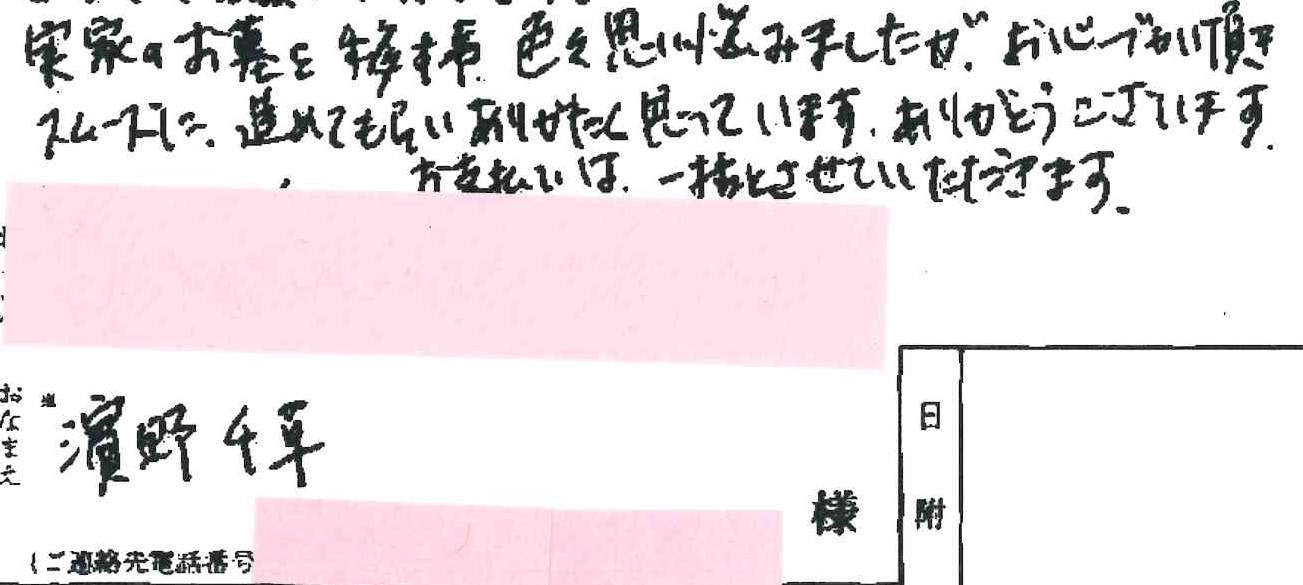 実家のお墓を 色々思い悩みましたが、お心づかい頂き
スムーズに、進めてもらいありがたく思っています。ありがとうございます。
お支払いは、一括とさせていただきます。
おなまえ
濱野千草
様
日附
(ご連絡先電話番号